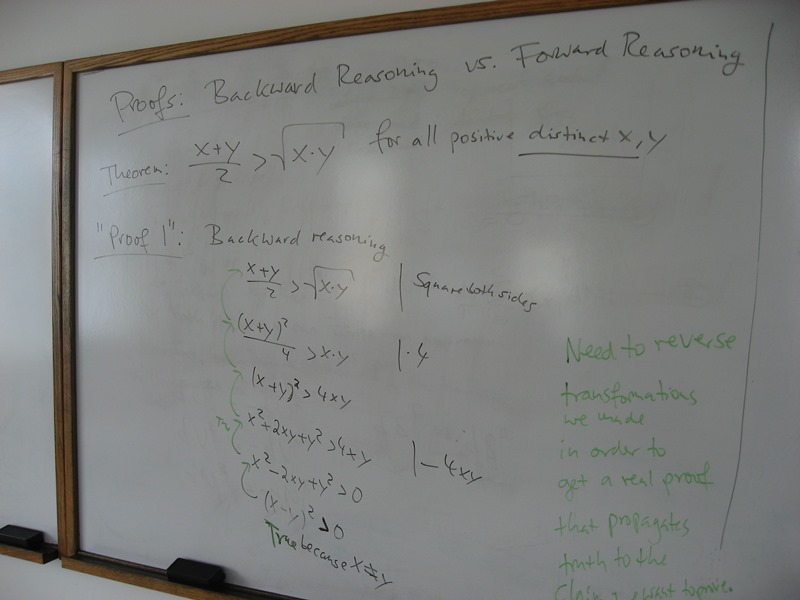 Proofs: Backward Reasoning vs. Forward Reasoning
Theorem: (x+y)/2 > √(x·y) for all positive distinct x, y
"Proof 1": Backward reasoning
(x+y)/2 > √(x·y) | Square both sides
(x+y)²/4 > x·y | · 4
(x+y)² > 4xy
x²+2xy+y² > 4xy | − 4xy
x²−2xy+y² > 0
(x−y)² > 0
True because x ≠ y
Need to reverse
transformations
we made
in order to
get a real proof
that propagates
truth to the
claim want to prove.